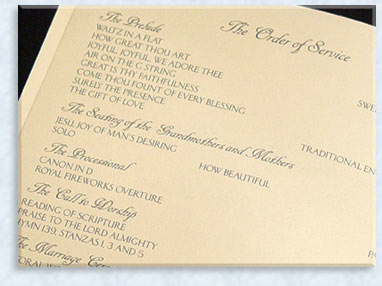 The Order of Service
The Prelude
WALTZ IN A FLAT
HOW GREAT THOU ART
JOYFUL, JOYFUL, WE ADORE THEE
AIR ON THE G STRING
GREAT IS THY FAITHFULNESS
COME THOU FOUNT OF EVERY BLESSING
SURELY THE PRESENCE
THE GIFT OF LOVE
SWE
The Seating of the Grandmothers and Mothers
JESU, JOY OF MAN'S DESIRING
TRADITIONAL EN
SOLO
HOW BEAUTIFUL
The Processional
CANON IN D
ROYAL FIREWORKS OVERTURE
The Call to Worship
READING OF SCRIPTURE
PRAISE TO THE LORD ALMIGHTY
HYMN 139, STANZAS 1, 3 AND 5
The Marriage Cer